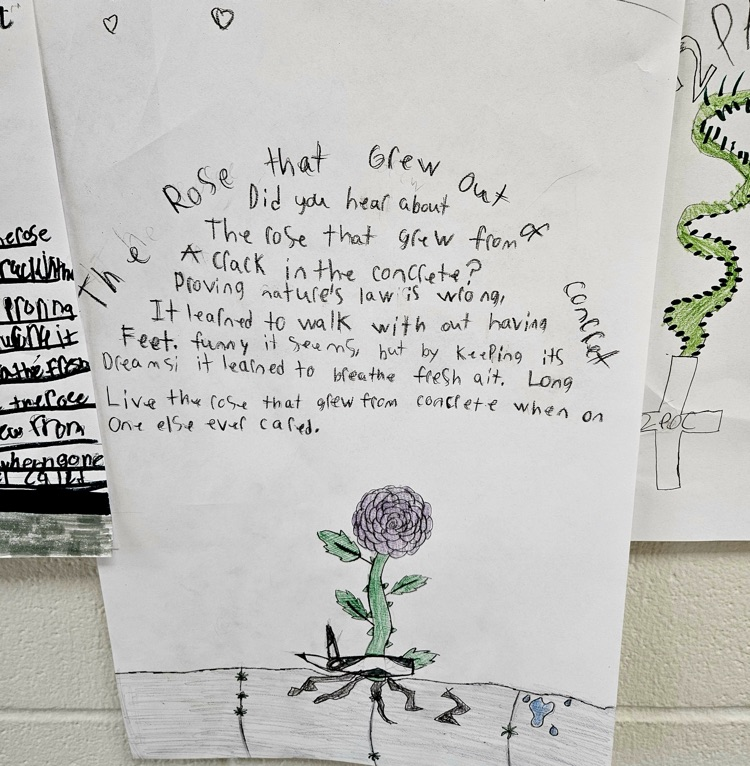 The Rose that Grew Out of concret
Did you hear about
The rose that grew from
A crack in the concrete?
Proving nature's law is wrong,
It learned to walk with out having
Feet. funny it seems, but by keeping its
Dreams; it learned to breathe fresh air. Long
Live the rose that grew from concrete when on
One else ever cared.
herose
rackinthe
ew from
2PAC